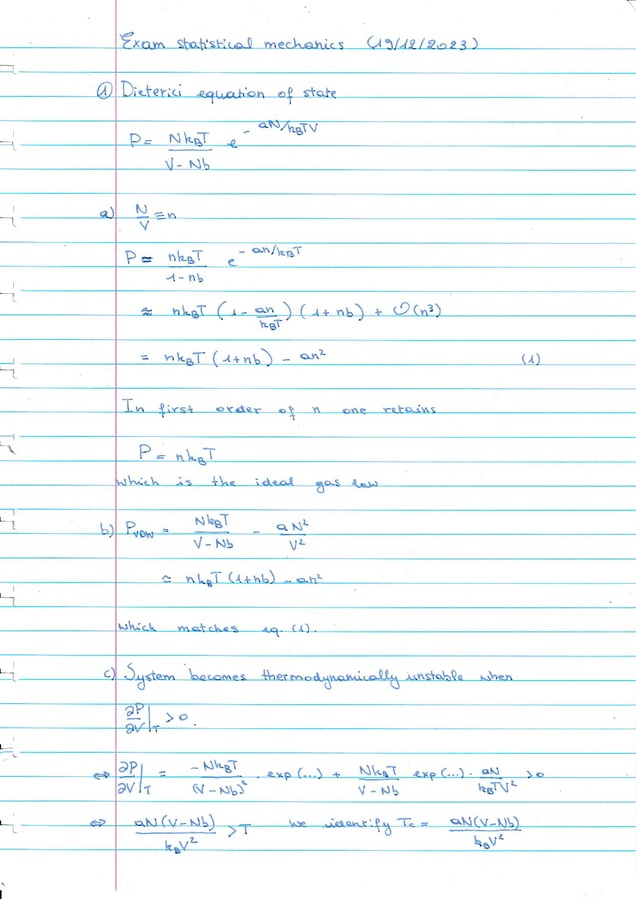 Exam statistical mechanics (19/12/2023)
① Dieterici equation of state
P = NkBT / (V - Nb) e^(-aN/kBTV)
a) N/V ≡ n
P = nkBT / (1 - nb) e^(-an/kBT)
≈ nkBT (1 - an/kBT) (1 + nb) + O(n³)
= nkBT (1 + nb) - an² (1)
In first order of n one retains
P = nkBT
which is the ideal gas law
b) PVDW = NkBT / (V - Nb) - aN²/V²
≃ nkBT (1 + nb) - an²
which matches eq. (1).
c) System becomes thermodynamically unstable when
∂P/∂V|T > 0.
⇔ ∂P/∂V|T = -NkBT / (V - Nb)² . exp(...) + NkBT / (V - Nb) exp(...) . aN / kBTV² > 0
⇔ aN(V - Nb) / kBV² > T we identify Tc = aN(V - Nb) / kBV²